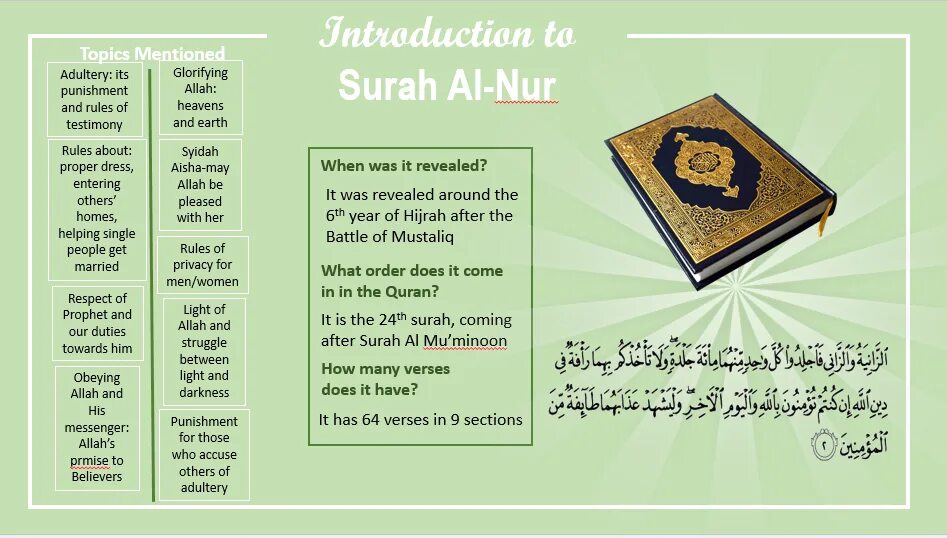 Introduction to
Surah Al-Nur
Topics Mentioned
Adultery: its
punishment
and rules of
testimony
Rules about:
proper dress,
entering
others’
homes,
helping single
people get
married
Respect of
Prophet and
our duties
towards him
Obeying
Allah and
His
messenger:
Allah’s
prmise to
Believers
Glorifying
Allah:
heavens
and earth
Syidah
Aisha-may
Allah be
pleased
with her
Rules of
privacy for
men/women
Light of
Allah and
struggle
between
light and
darkness
Punishment
for those
who accuse
others of
adultery
When was it revealed?
It was revealed around the
6th year of Hijrah after the
Battle of Mustaliq
What order does it come
in in the Quran?
It is the 24th surah, coming
after Surah Al Mu’minoon
How many verses
does it have?
It has 64 verses in 9 sections
الزَّانِيَةُ وَالزَّانِي فَاجْلِدُوا كُلَّ وَاحِدٍ مِّنْهُمَا مِائَةَ جَلْدَةٍ ۖ وَلَا تَأْخُذْكُم بِهِمَا رَأْفَةٌ فِي
دِينِ اللَّهِ إِن كُنتُمْ تُؤْمِنُونَ بِاللَّهِ وَالْيَوْمِ الْآخِرِ ۖ وَلْيَشْهَدْ عَذَابَهُمَا طَائِفَةٌ مِّنَ
الْمُؤْمِنِينَ ٢